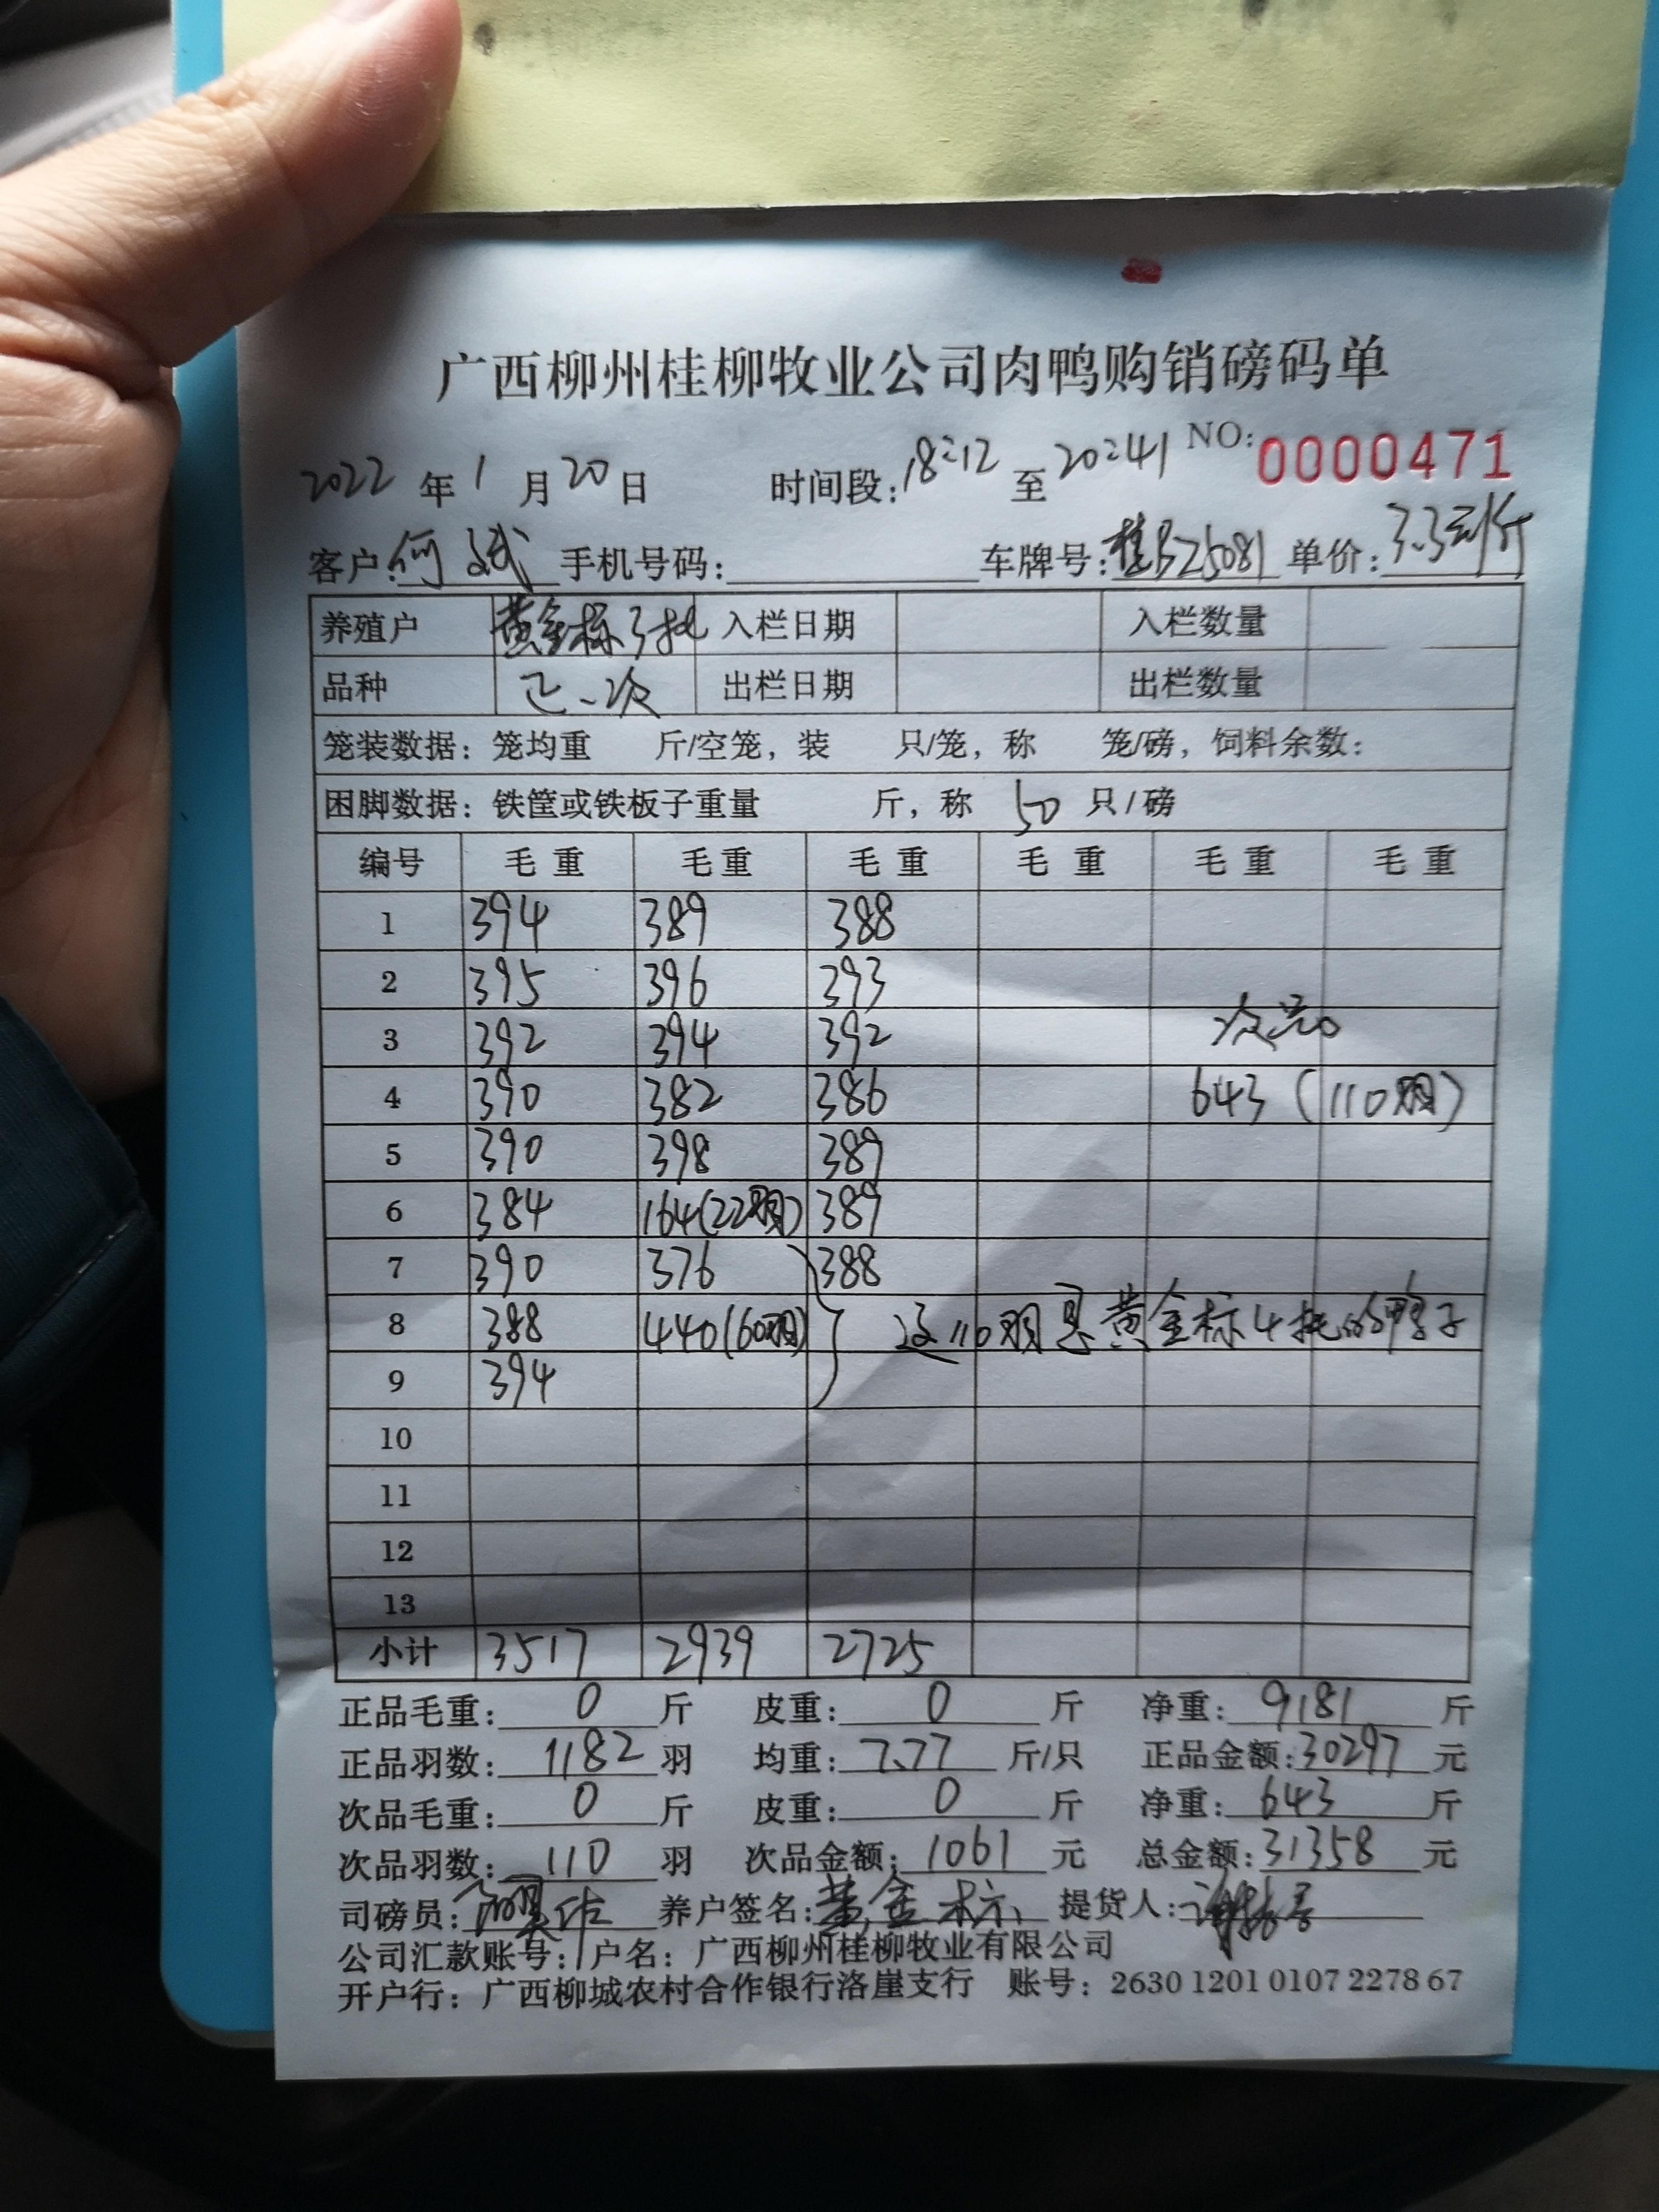 广西柳州桂柳牧业公司肉鸭购销磅码单
2022 年 1 月 20 日 时间段:18:12 至 20:41 NO:0000471
客户:何 武 手机号码: 车牌号:桂BZ5081 单价:3.3元/斤
养殖户 黄金标3批 入栏日期 入栏数量
品种 次 出栏日期 出栏数量
笼装数据:笼均重 斤/空笼,装 只/笼,称 笼/磅,饲料余数:
困脚数据:铁筐或铁板子重量 斤,称 50 只/磅
编号 毛重 毛重 毛重 毛重 毛重 毛重
1 394 389 388
2 395 396 393
3 392 394 392 次品
4 390 382 386 643(110羽)
5 390 398 389
6 384 164(22羽) 389
7 390 376 388
8 388 440(60羽) 这110羽是黄金标4批的鸭子
9 394
10
11
12
13
小计 3517 2939 2725
正品毛重:0斤 皮重:0斤 净重:9181斤
正品羽数:1182羽 均重:7.77斤/只 正品金额:30297元
次品毛重:0斤 皮重:0斤 净重:643斤
次品羽数:110羽 次品金额:1061元 总金额:31358元
司磅员: 养户签名:黄金标 提货人:
公司汇款账号:户名:广西柳州桂柳牧业有限公司
开户行:广西柳城农村合作银行洛崖支行 账号:2630 1201 0107 2278 67